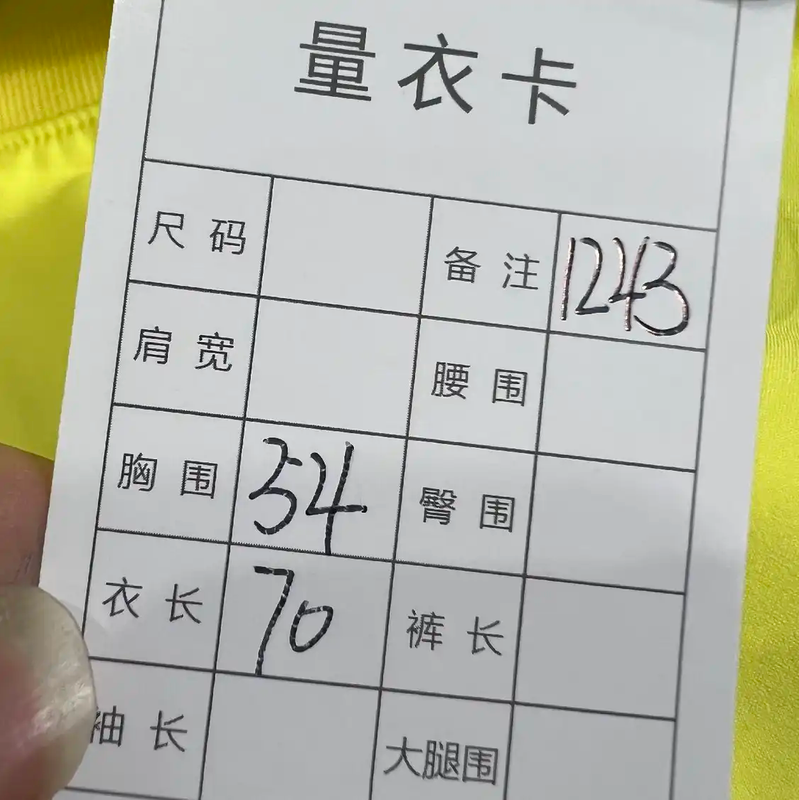 量衣卡
尺码 备注 1243
肩宽 腰围
胸围 54 臀围
衣长 70 裤长
袖长 大腿围